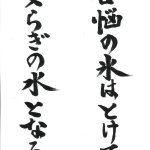 悩の氷はとけて
らぎの水となる